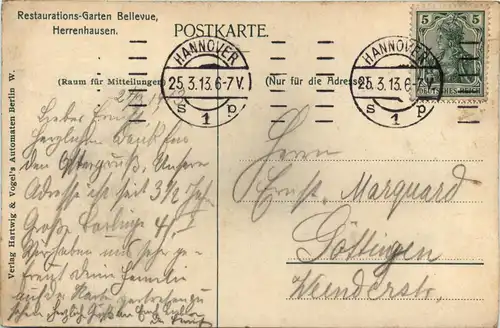 Restaurations-Garten Bellevue,
Herrenhausen.
POSTKARTE.
5 5
DEUTSCHES REICH
HANNOVER
25.3.13.6-7V.
s 1 p
HANNOVER
25.3.13.6-7V.
s 1 p
(Raum für Mitteilungen)
(Nur für die Adresse)
Lieber Ernst,
Herzlichen Dank für
den Ostergruß. Unsere
Adresse ist seit 3½ Jahr
Große Barlinge 4, I
Wir haben uns sehr ge-
freut deine Familie
auf der Karte
herzlich
Herrn
Ernst Marquard
Göttingen
Weenderstr.
Verlag Hartwig & Vogel's Automaten Berlin W.